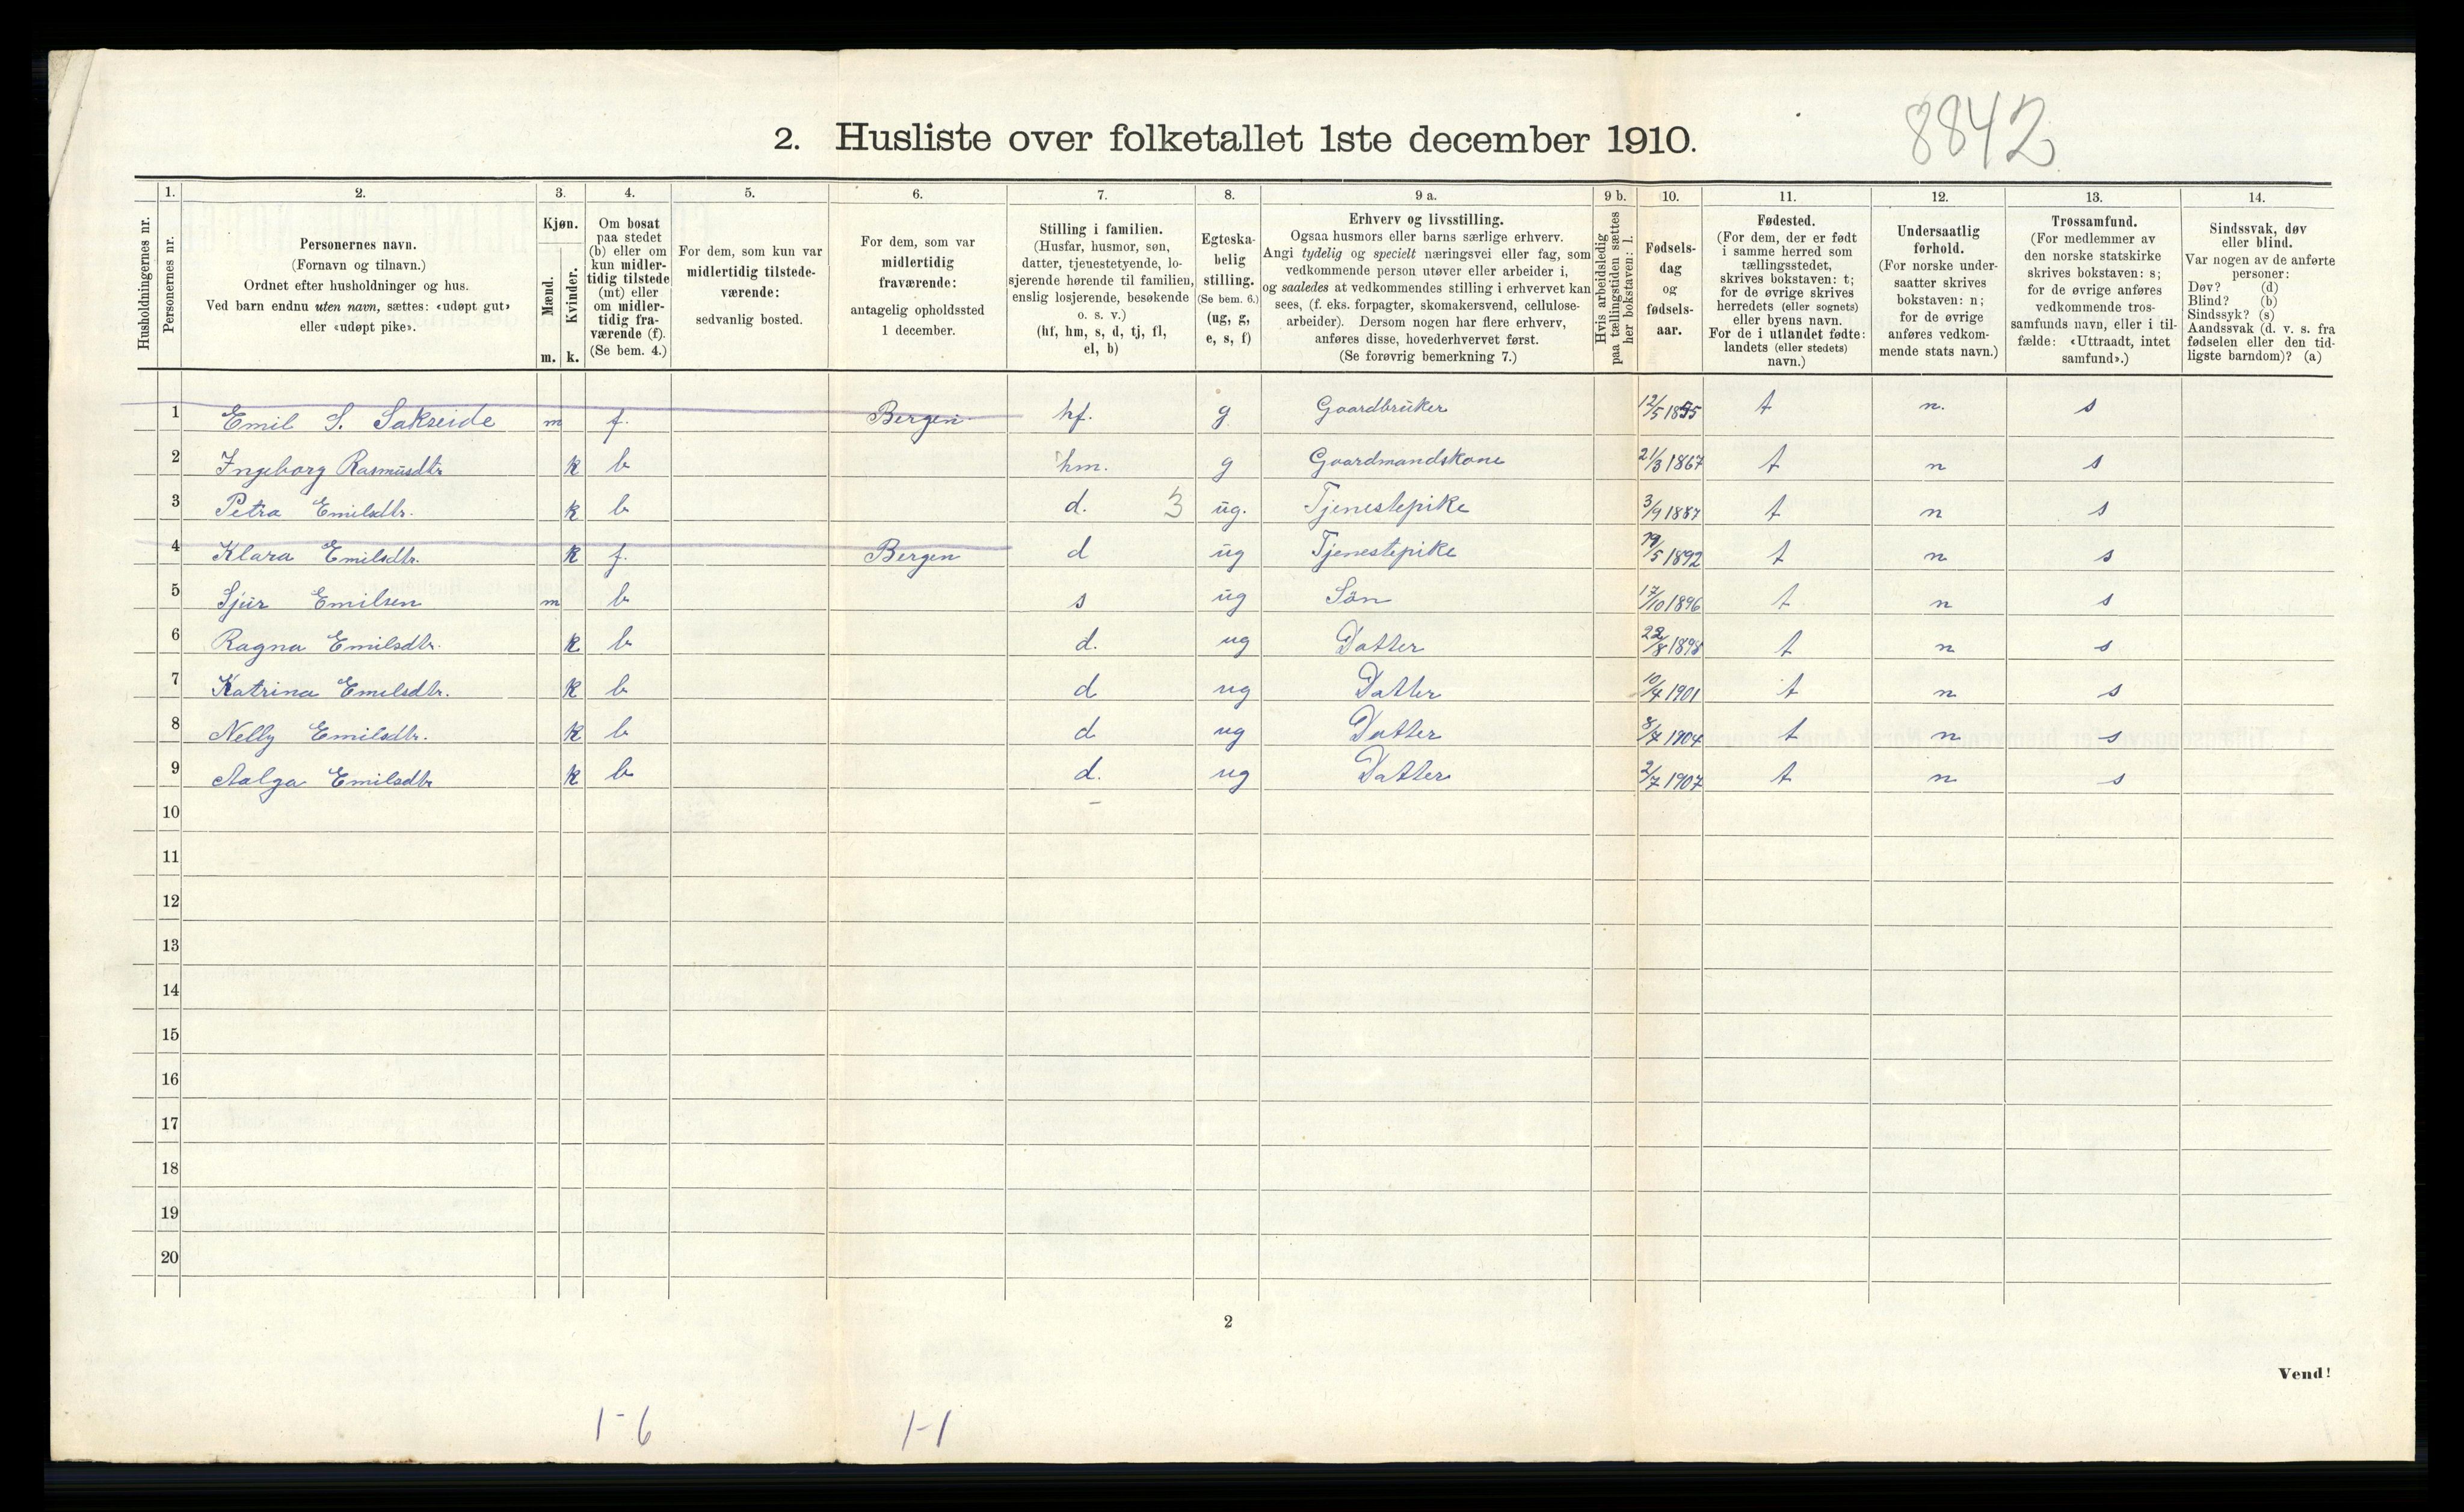 8842
2. Husliste over folketallet 1ste december 1910.
Husholdningernes nr.
1. 2. 3. 4. 5. 6. 7. 8. 9 a. 9 b. 10. 11. 12. 13. 14.
Personernes nr.
Personernes navn.
(Fornavn og tilnavn.)
Ordnet efter husholdninger og hus.
Ved barn endnu uten navn, sættes: «udøpt gut»
eller «udøpt pike».
Kjøn.
Mænd.
Kvinder.
m. k.
Om bosat
paa stedet
(b) eller om
kun midler-
tidig tilstede
(mt) eller
om midler-
tidig fra-
værende (f).
(Se bem. 4.)
For dem, som kun var
midlertidig tilstede-
værende:
sedvanlig bosted.
For dem, som var
midlertidig
fraværende:
antagelig opholdssted
1 december.
Stilling i familien.
(Husfar, husmor, søn,
datter, tjenestetyende, lo-
sjerende hørende til familien,
enslig losjerende, besøkende
o. s. v.)
(hf, hm, s, d, tj, fl,
el, b)
Egteska-
belig
stilling.
(Se bem. 6.)
(ug, g,
e, s, f)
Erhverv og livsstilling.
Ogsaa husmors eller barns særlige erhverv.
Angi tydelig og specielt næringsvei eller fag, som
vedkommende person utøver eller arbeider i,
og saaledes at vedkommendes stilling i erhvervet kan
sees, (f. eks. forpagter, skomakersvend, cellulose-
arbeider). Dersom nogen har flere erhverv,
anføres disse, hovederhvervet først.
(Se forøvrig bemerkning 7.)
Hvis arbeidsledig
paa tællingstiden sættes
her bokstaven: l.
Fødsels-
dag
og
fødsels-
aar.
Fødested.
(For dem, der er født
i samme herred som
tællingsstedet,
skrives bokstaven: t;
for de øvrige skrives
herredets (eller sognets)
eller byens navn.
For de i utlandet fødte:
landets (eller stedets)
navn.)
Undersaatlig
forhold.
(For norske under-
saatter skrives
bokstaven: n;
for de øvrige
anføres vedkom-
mende stats navn.)
Trossamfund.
(For medlemmer av
den norske statskirke
skrives bokstaven: s;
for de øvrige anføres
vedkommende tros-
samfunds navn, eller i til-
fælde: «Uttraadt, intet
samfund».)
Sindssvak, døv
eller blind.
Var nogen av de anførte
personer:
Døv? (d)
Blind? (b)
Sindssyk? (s)
Aandssvak (d. v. s. fra
fødselen eller den tid-
ligste barndom)? (a)
1 Emil S. Sakseide m f. Bergen hf. g. Gaardbruker 12/5 1855 t n. s
2 Ingeborg Rasmusdtr. k b hm. g Gaardmandskone 21/3 1867 t n s
3 Petra Emilsdtr. k b d. 3 ug. Tjenestepike 3/9 1887 t n s
4 Klara Emilsdtr. k f. Bergen d ug Tjenestepike 19/5 1892 t n s
5 Sjur Emilsen m b s ug Sön 17/10 1896 t n s
6 Ragna Emilsdtr. k b d. ug Datter 22/8 1898 t n s
7 Katrina Emilsdtr. k b d ug Datter 10/4 1901 t n s
8 Nelly Emilsdtr. k b d ug Datter 8/7 1904 t n s
9 Aalga Emilsdtr k b d. ug Datter 2/7 1907 t n s
10
11
12
13
14
15
16
17
18
19
20
2
Vend!
1-6 1-1